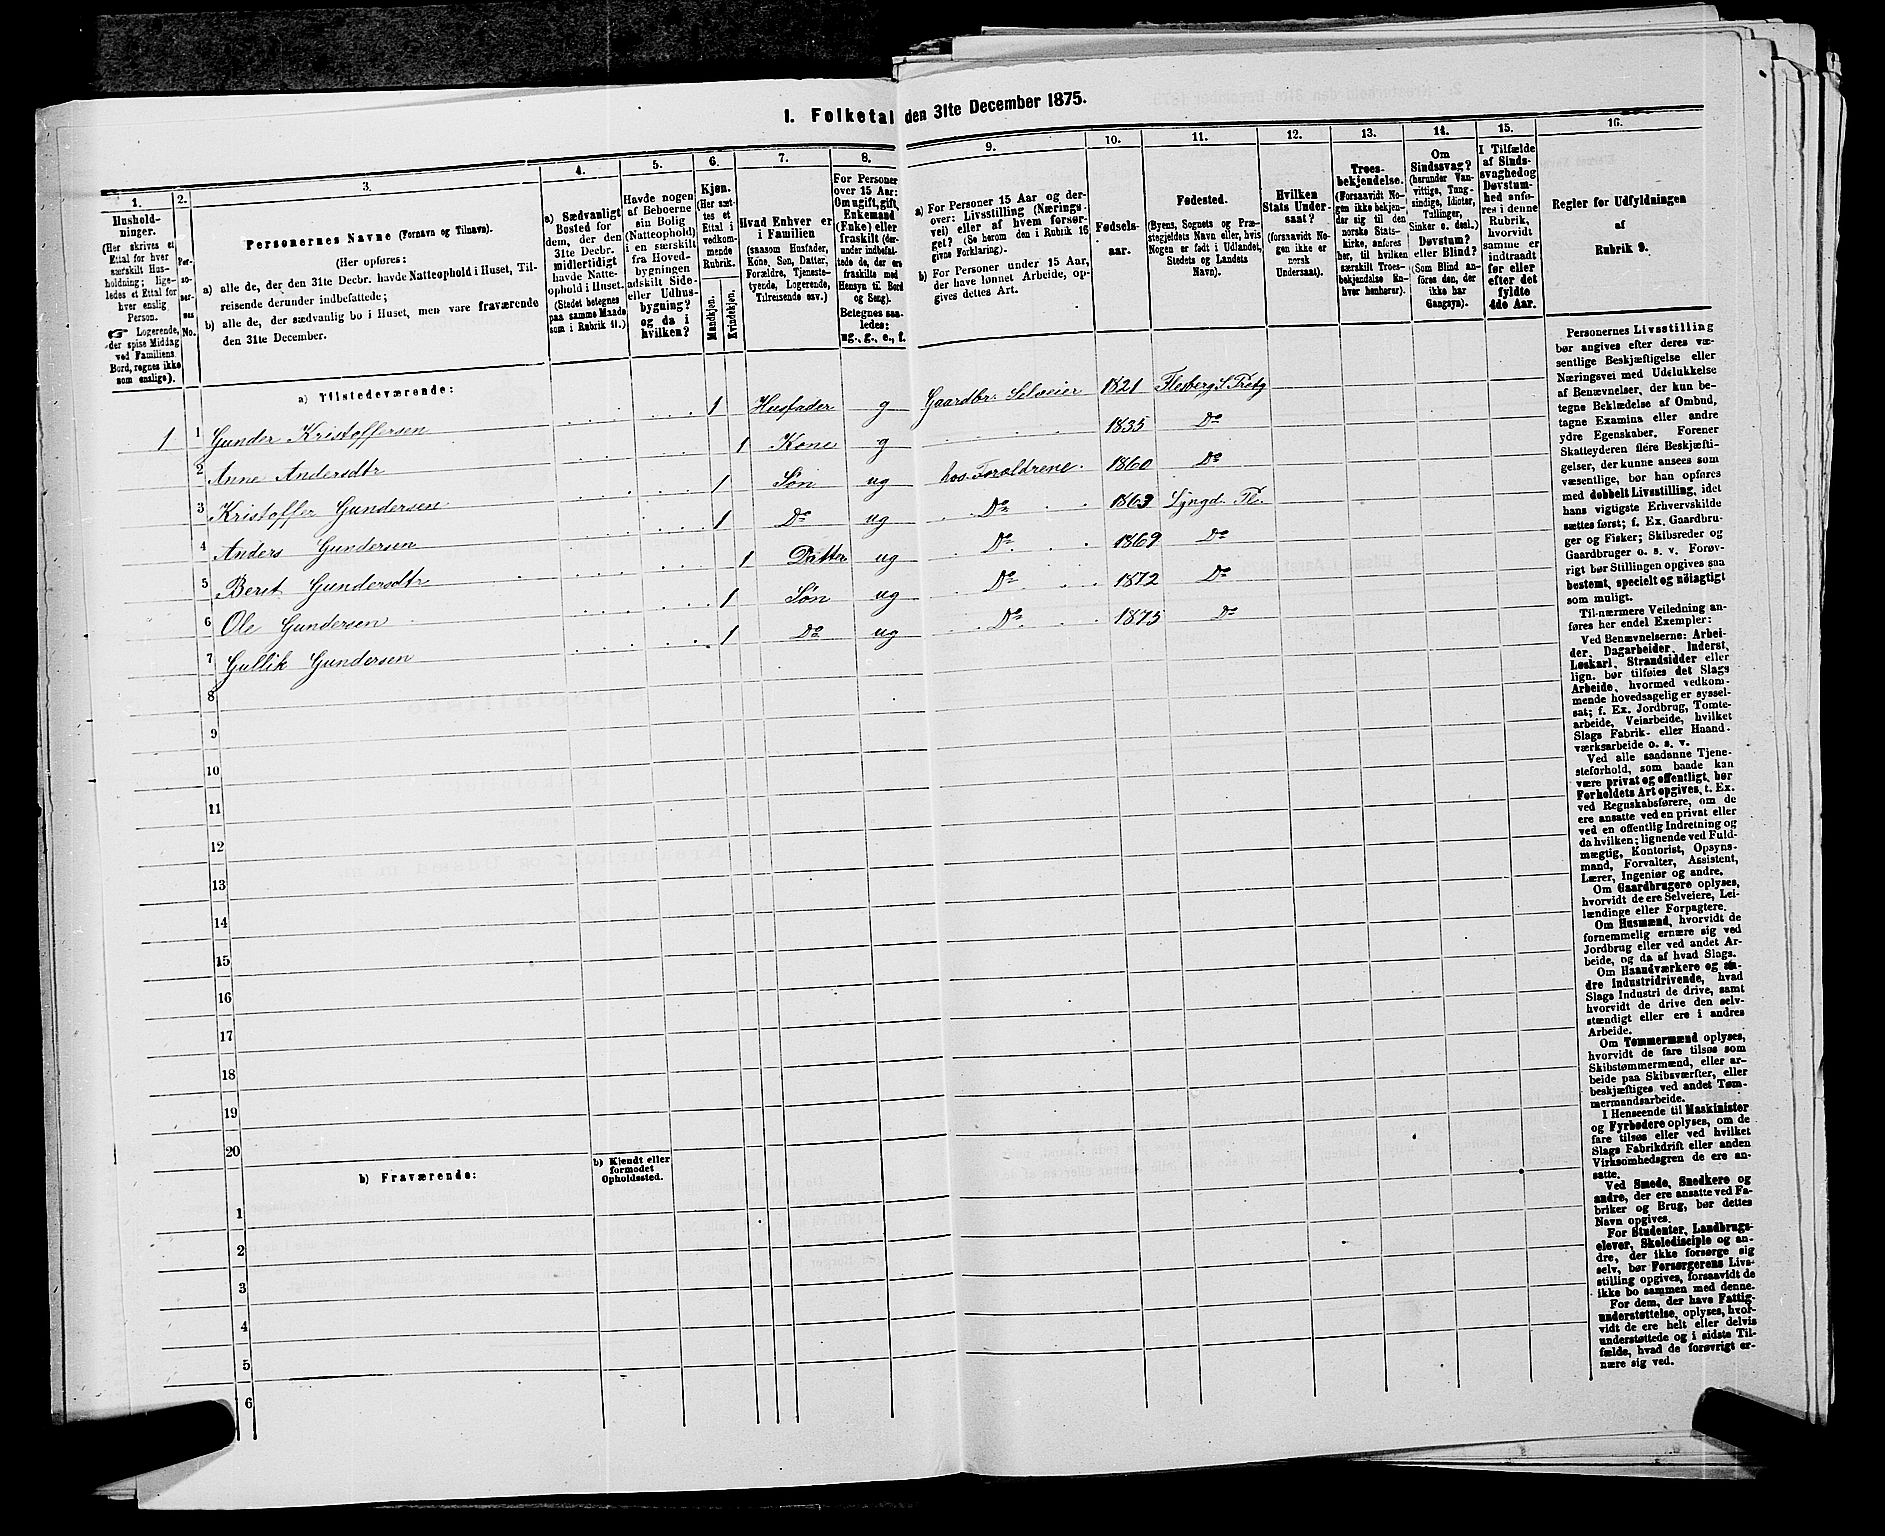 1. Folketal den 31te December 1875.
1.
Hushold-
ninger.
(Her skrives et
Ettal for hver
særskilt Hus-
holdning; lige-
ledes et Ettal for
hver enslig
Person.
☞ Logerende,
der spise Middag
ved Familiens
Bord, regnes ikke
som enslige).
2.
Per-
so-
ner-
nes
No.
3.
Personernes Navne (Fornavn og Tilnavn).
(Her opføres:
a) alle de, der den 31te Decbr. havde Natteophold i Huset, Til-
reisende derunder indbefattede;
b) alle de, der sædvanlig bo i Huset, men vare fraværende
den 31te December.
4.
a) Sædvanligt
Bosted for
dem, der den
31te Decbr.
midlertidigt
havde Natte-
ophold i Huset.
(Stedet betegnes
paa samme Maade
som i Rubrik 11.)
5.
Havde nogen
af Beboerne
sin Bolig
(Natteophold)
i en særskilt
fra Hoved-
bygningen
adskilt Side-
eller Udhus-
bygning?
og da i
hvilken?
6.
Kjøn.
(Her sæt-
tes et
Ettal i
vedkom-
mende
Rubrik.
Mandkjøn.
Kvindekjøn.
7.
Hvad Enhver er
i Familien
(saasom Husfader,
Kone, Søn, Datter,
Forældre, Tjeneste-
tyende, Logerende,
Tilreisende osv.)
8.
For Personer
over 15 Aar:
Om ugift, gift,
Enkemand
(Enke) eller
fraskilt (der-
under indbefat-
tede de, der ere
fraskilte med
Hensyn til Bord
og Seng).
Betegnes saa-
ledes:
ug., g., e., f.
9.
a) For Personer 15 Aar og der-
over: Livsstilling (Nærings-
vei) eller af hvem forsør-
get? (Se herom den i Rubrik 16
givne Forklaring).
b) For Personer under 15 Aar,
der have lønnet Arbeide, op-
gives dettes Art.
10.
Fødsels-
aar.
11.
Fødested.
(Byens, Sognets og Præ-
stegjeldets Navn eller, hvis
Nogen er født i Udlandet,
Stedets og Landets
Navn).
12.
Hvilken
Stats Under-
saat?
(forsaavidt No-
gen ikke er
norsk
Undersaat).
13.
Troes-
bekjendelse.
(Forsaavidt No-
gen ikke bekjen-
der sig til den
norske Stats-
kirke, anføres
her, til hvilken
særskilt Troes-
bekjendelse En-
hver henhører).
14.
Om
Sindssvag?
(herunder Van-
vittige, Tung-
sindige, Idioter,
Tullinger,
Sinker o. desl.)
Døvstum?
eller Blind?
(Som Blind an-
føres den, der
ikke har
Gangsyn).
15.
I Tilfælde
af Sinds-
svaghed og
Døvstum-
hed anfø-
res i denne
Rubrik,
hvorvidt
samme er
indtraadt
før eller
efter det
fyldte
4de Aar.
16.
Regler for Udfyldningen
af
Rubrik 9.
a) Tilstedeværende:
1 1 Gunder Kristoffersen 1 Husfader g Gaardbr. Selveier 1821 Flesberg S. Prstg
2 Anne Andersdtr 1 Kone g 1835 Do
3 Kristoffer Gundersen 1 Søn ug hos Forældrene. 1860 Do
4 Anders Gundersen 1 Do ug Do 1863 Lyngd. Fl.
5 Berit Gundersdtr 1 Datter ug Do. 1869 Do
6 Ole Gundersen 1 Søn ug Do 1872 Do
7 Gullik Gundersen 1 Do ug Do. 1875 Do
8
9
10
11
12
13
14
15
16
17
18
19
20
b) Fraværende:
b) Kjendt eller
formodet
Opholdssted.
1
2
3
4
5
6
Personernes Livsstilling
bør angives efter deres væ-
sentlige Beskjæftigelse eller
Næringsvei med Udelukkelse
af Benævnelser, der kun be-
tegne Beklædelse af Ombud,
tagne Examina eller andre
ydre Egenskaber. Forener
Skatteyderen flere Beskjæfti-
gelser, der kunne ansees som
væsentlige, bør han opføres
med dobbelt Livsstilling, idet
hans vigtigste Erhvervskilde
sættes først; f. Ex. Gaardbru-
ger og Fisker; Skibsreder og
Gaardbruger o. s. v. Forøv-
rigt bør Stillingen opgives saa
bestemt, specielt og nøiagtigt
som muligt.
Til nærmere Veiledning an-
føres her endel Exempler:
Ved Benævnelserne: Arbei-
der, Dagarbeider, Inderst,
Løskarl, Strandsidder eller
lign. bør tilføies det Slags
Arbeide, hvormed vedkom-
mende hovedsagelig er syssel-
sat; f. Ex. Jordbrug, Tomte-
arbeide, Veiarbeide, hvilket
Slags Fabrik- eller Haand-
værksarbeide o. s. v.
Ved alle saadanne Tjene-
steforhold, som baade kan
være privat og offentligt, bør
Forholdets Art opgives, t. Ex.
ved Regnskabsførere, om de
ere ansatte ved en privat eller
ved en offentlig Indretning og
da hvilken; lignende ved Fuld-
mægtig, Kontorist, Opsyns-
mand, Forvalter, Assistent,
Lærer, Ingeniør og andre.
Om Gaardbrugere oplyses,
hvorvidt de ere Selveiere, Lei-
lændinge eller Forpagtere.
Om Husmænd, hvorvidt de
fornemmelig ernære sig ved
Jordbrug eller ved andet Ar-
beide, og da af hvad Slags.
Om Haandværkere og an-
dre Industridrivende, hvad
Slags Industri de drive, samt
hvorvidt de drive den selv-
stændigt eller ere i andres
Arbeide.
Om Tømmermænd oplyses,
hvorvidt de fare tilsøs som
Skibstømmermænd, eller ar-
beide paa Skibsværfter, eller
beskjæftiges ved andet Tøm-
mermandsarbeide.
I Henseende til Maskinister
og Fyrbødere oplyses, om de
fare tilsøs eller ved hvilket
Slags Fabrikdrift eller anden
Virksomhedsgren de ere an-
satte.
Ved Smede, Snedkere og
andre, der ere ansatte ved Fa-
briker og Brug, bør dettes
Navn opgives.
For Studenter, Landbrugs-
elever, Skoledisciple og an-
dre, der ikke forsørge sig
selv, bør Forsørgerens Livs-
stilling opgives, forsaavidt de
ikke bo sammen med denne.
For dem, der have Fattig-
understøttelse, oplyses, hvor-
vidt de ere helt eller delvis
understøttede og i sidste Til-
fælde, hvad de forøvrigt er-
nære sig ved.